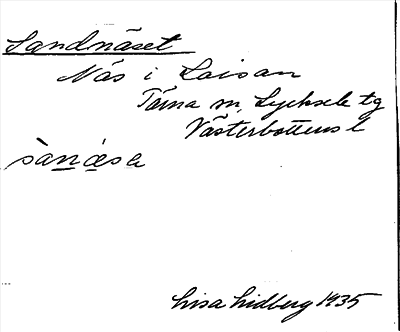 Sandnäset
Näs i Laisan
Tärna sn, Lycksele tg
Västerbottens l
sànæ̀sa
Lisa Lidberg 1935